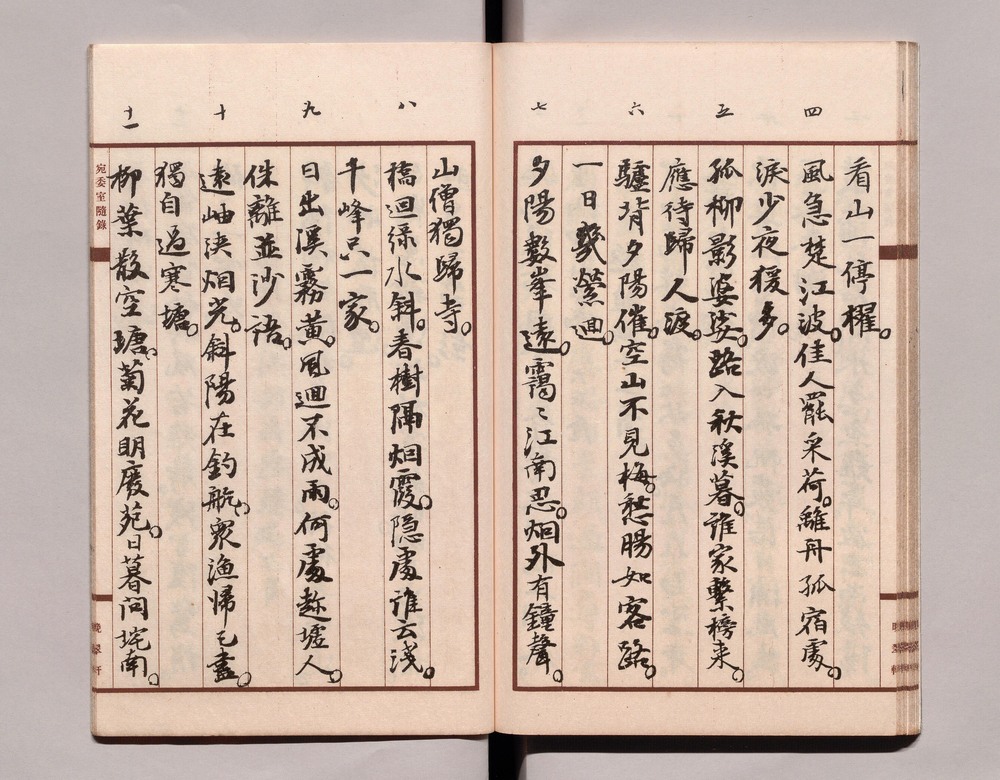 看山一停櫂。
四
風急楚江波。佳人罷采荷。離舟孤宿處。
淚少夜猨多。
五
孤柳影婆娑。路入秋溪暮。誰家繫榜来。
應待歸人渡。
六
驢背夕陽催。空山不見梅。愁腸如客路。
一日幾縈迴。
七
夕陽數峯遠。靄〻江南忍。烟外有鐘聲。
山僧獨歸寺。
八
橋迴緑水斜。春樹隔烟霞。隐處誰云淺。
千峰只一家。
九
日出溪霧黃。風迴不成雨。何處趂墟人。
侏離並沙語。
十
遠岫决烟光。斜陽在釣航。眾漁帰已盡。
獨自過寒塘。
十一
柳葉散空瑭。菊花明廢苑。日暮問垞南。
宛委室隨錄
晚翠軒